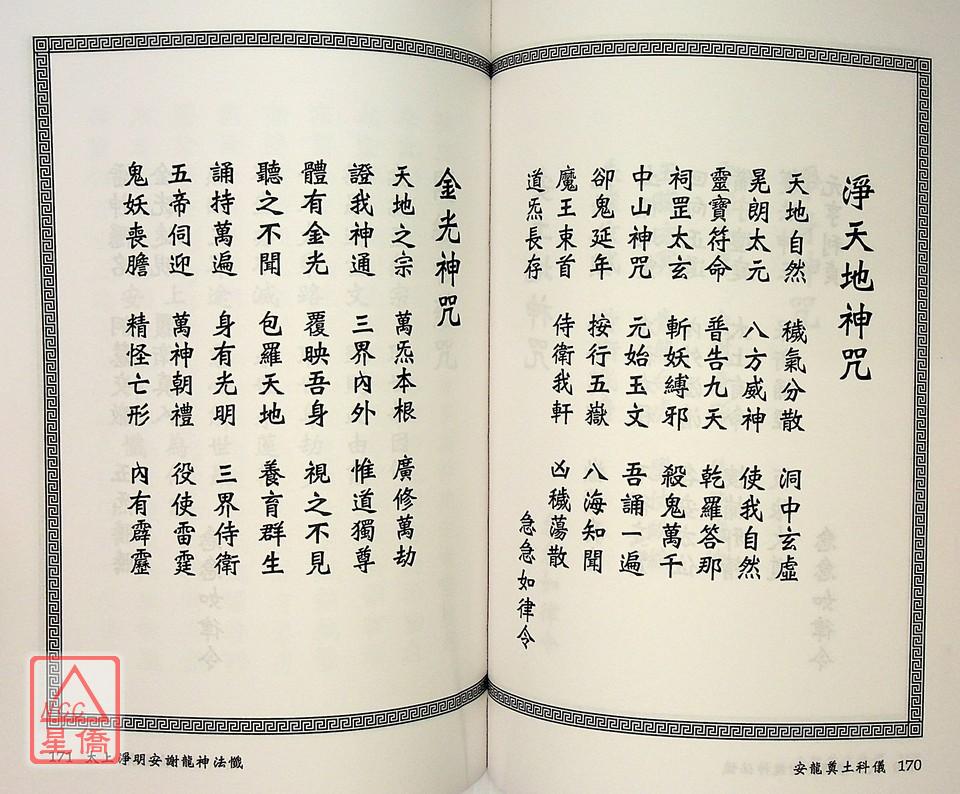 淨天地神咒
天地自然　穢氣分散　洞中玄虛
晃朗太元　八方威神　使我自然
靈寶符命　普告九天　乾羅答那
祠罡太玄　斬妖縛邪　殺鬼萬千
中山神咒　元始玉文　吾誦一遍
卻鬼延年　按行五嶽　八海知聞
魔王束首　侍衛我軒　凶穢蕩散
道炁長存　急急如律令
安龍奠土科儀 170
金光神咒
天地之宗　萬炁本根　廣修萬劫
證我神通　三界內外　惟道獨尊
體有金光　覆映吾身　視之不見
聽之不聞　包羅天地　養育群生
誦持萬遍　身有光明　三界侍衛
五帝伺迎　萬神朝禮　役使雷霆
鬼妖喪膽　精怪亡形　內有霹靂
171 太上淨明安謝龍神法懺
NCC
星僑